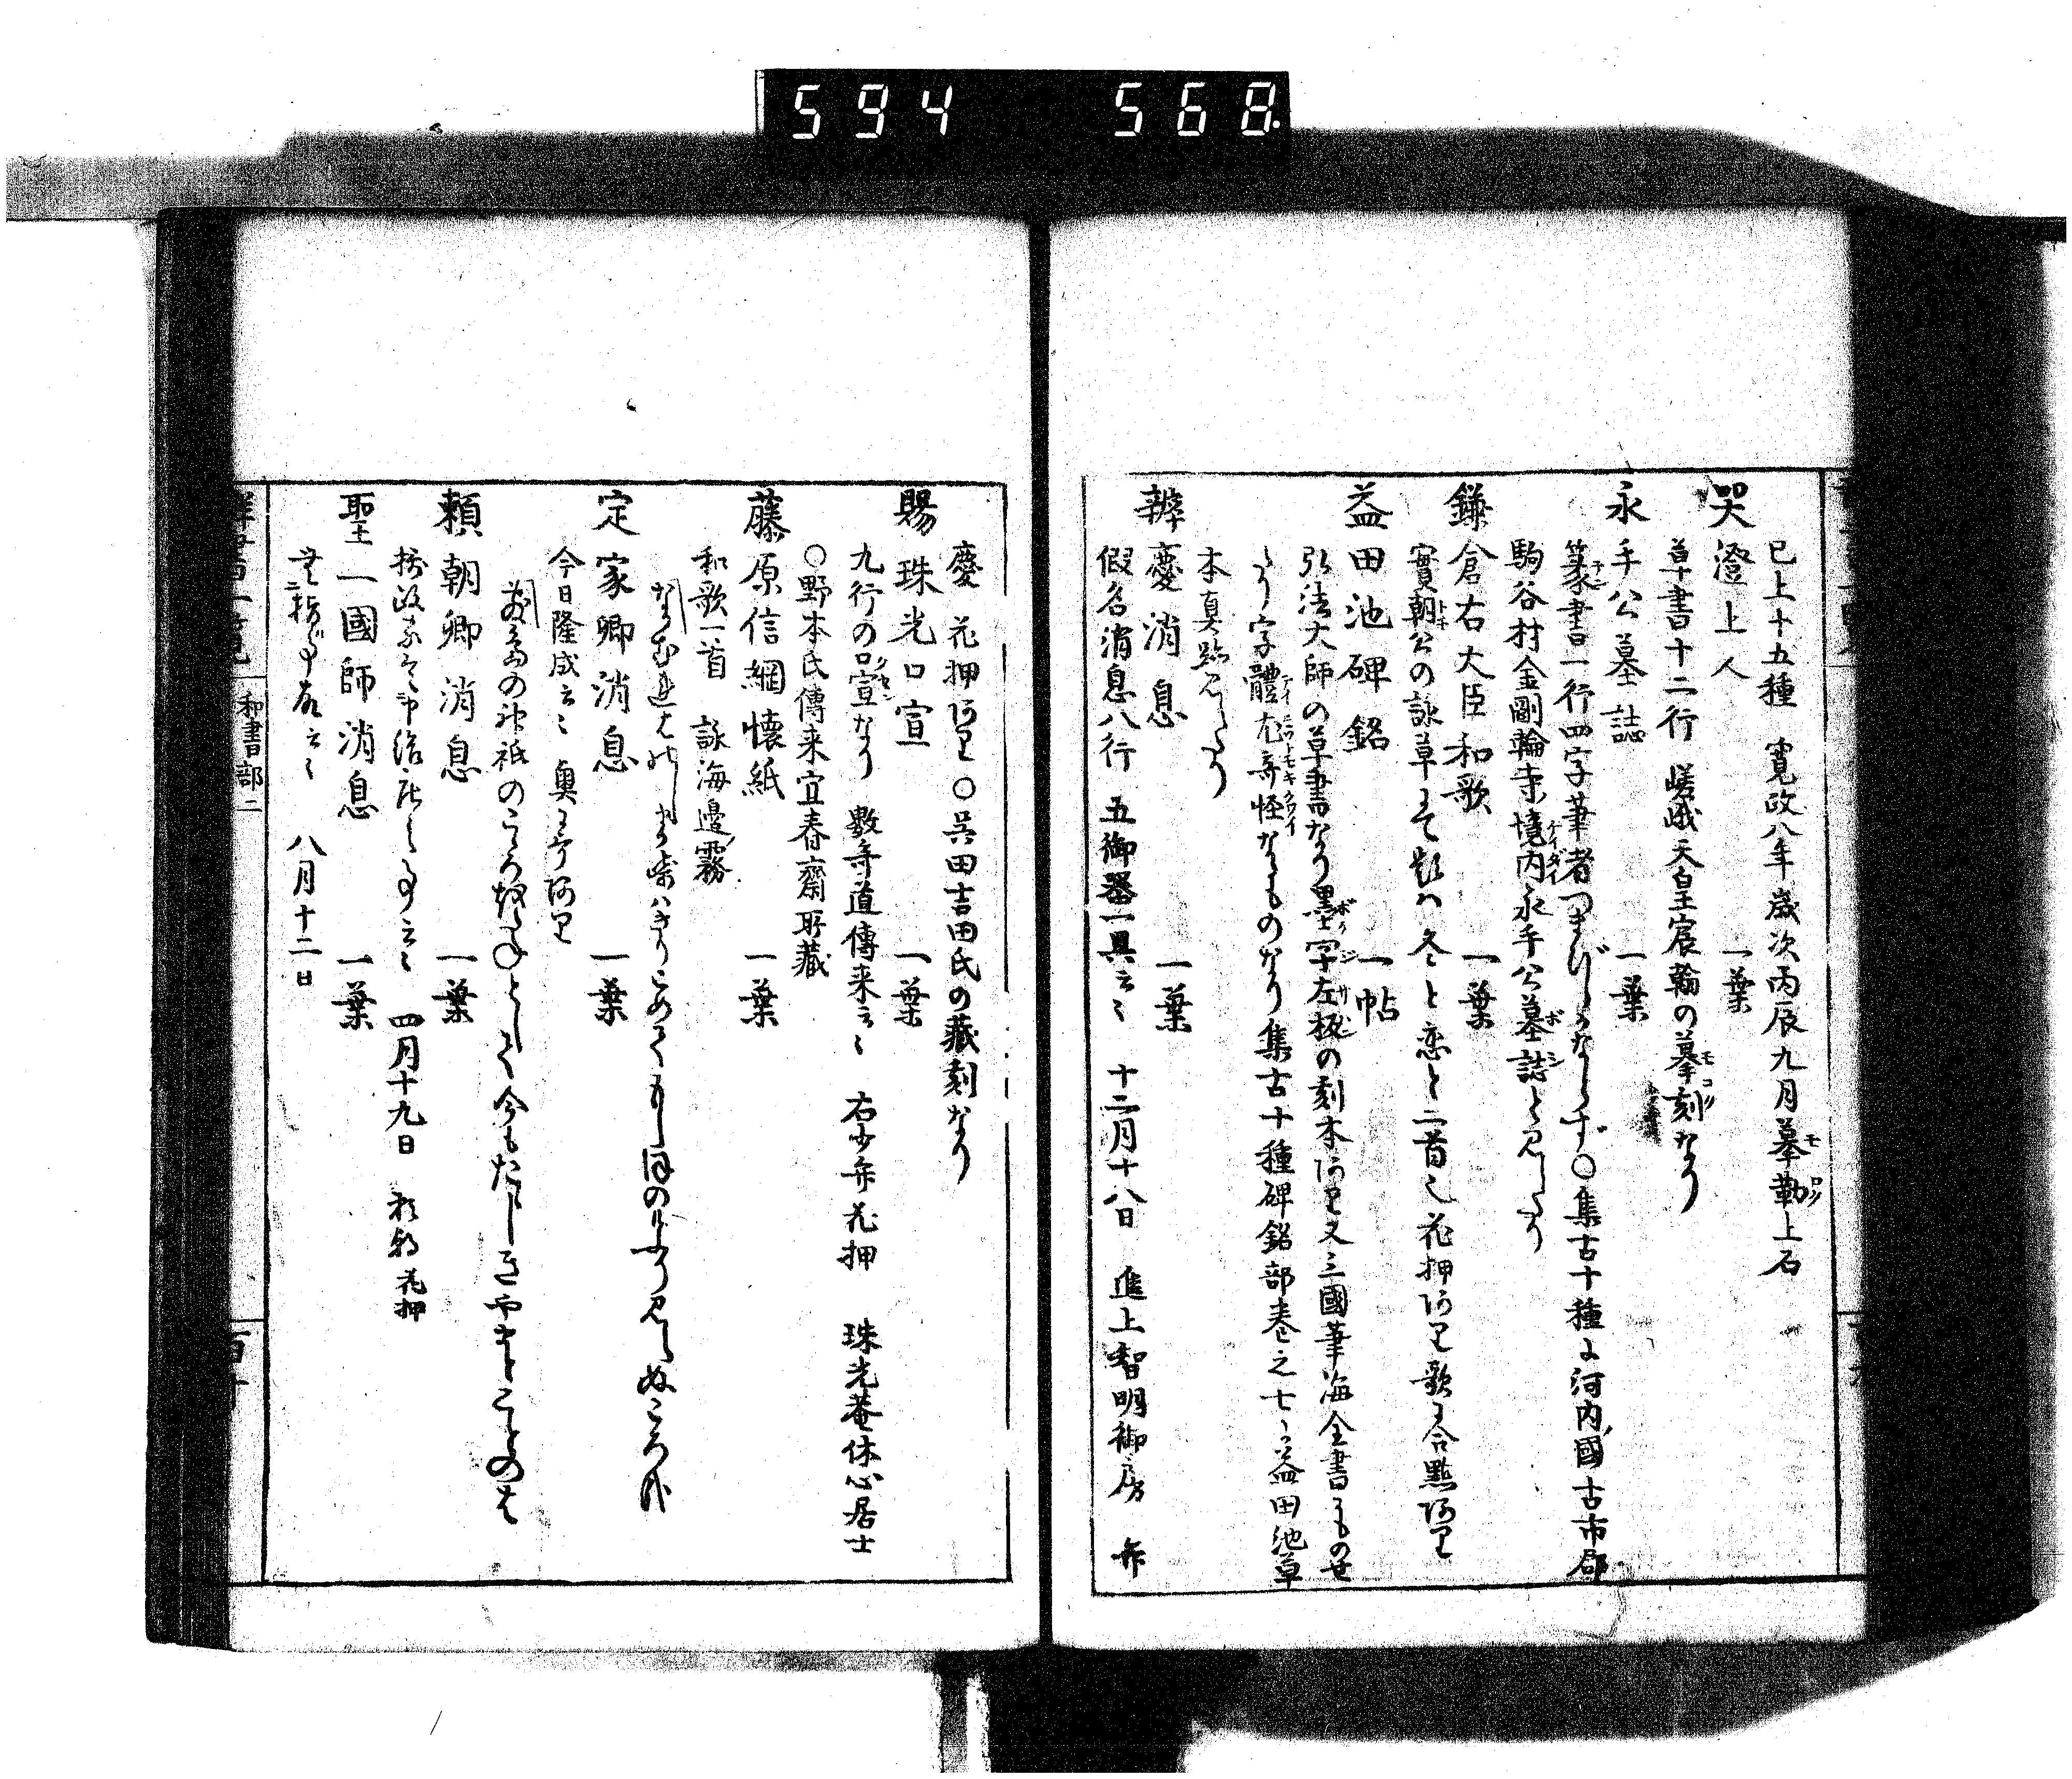 594 568
已上十五種 寛政八年歳次丙辰九月摹勒上石
哭澄上人 一葉
草書十二行 嵯峨天皇宸翰の摹刻なり
永手公墓誌 一葉
篆書一行四字筆者つまびらかならず○集古十種に河内國古市郡
駒谷村金剛輪寺境内永手公墓誌と見えたり
鎌倉右大臣和歌 一葉
實朝公の詠草にて題は冬と恋と二首也花押あり歌に合點あり
益田池碑銘 一帖
弘法大師の草書なり墨字左板の刻本あり又三國筆海全書にものせ
たり字體尤奇怪なるものなり集古十種碑銘部巻之七に益田池草
本真跡見えたり
辨慶消息 一葉
假名消息八行 五御器一具云々 十二月十八日 進上智明御房 弁
慶 花押あり○呉田吉田氏の藏刻なり
賜珠光口宣 一葉
九行の口宣なり 數寺道傳来云々 右少弁花押 珠光菴休心居士
○野本氏傳来宜春齋所藏
藤原信綱懐紙 一葉
和歌一首 詠海邊霧
定家卿消息 一葉
今日隆成云々 奥に哥あり
の神祇のこころ とて今もたゞしきやまとことのは
頼朝卿消息 一葉
四月十九日 花押
聖一國師消息 一葉
云々 八月十二日
和書部二